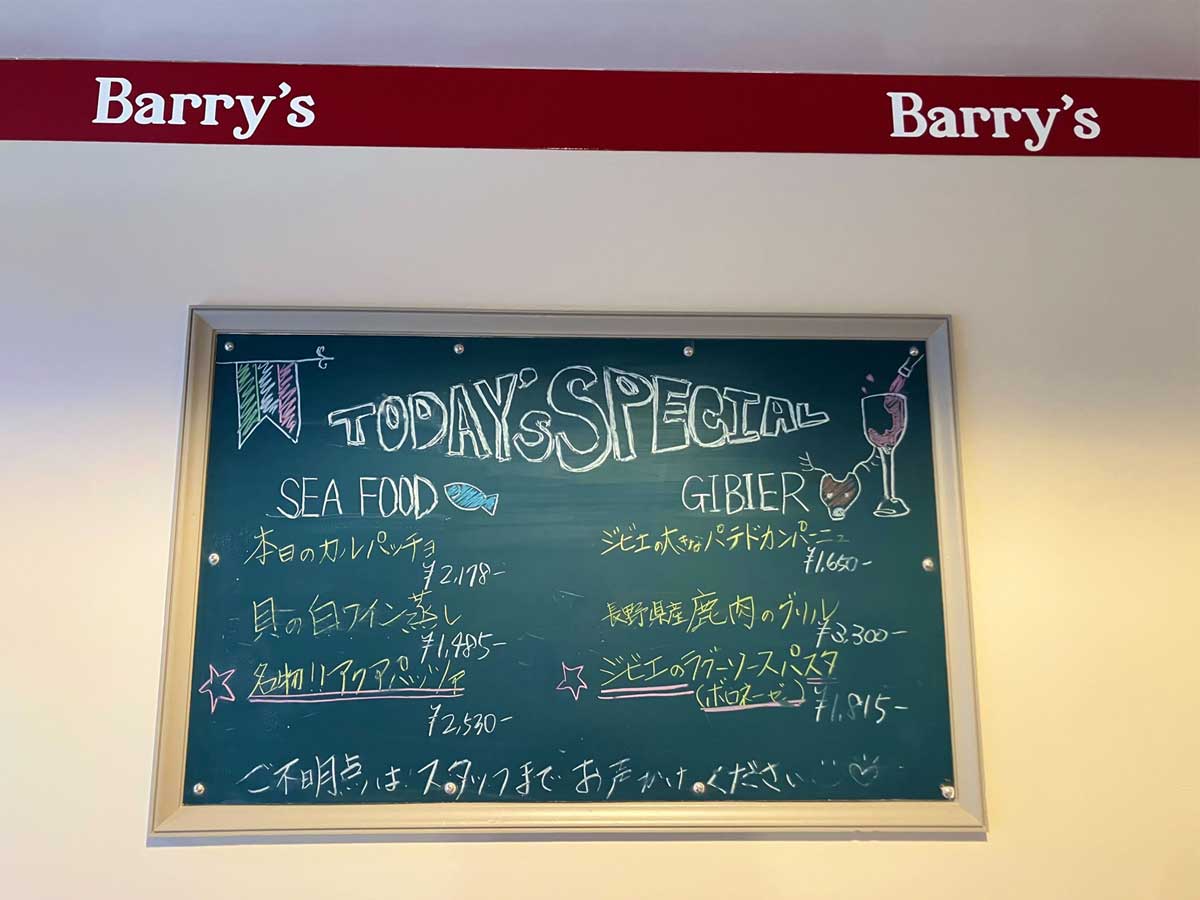 Barry's
Barry's
TODAY'S SPECIAL
SEA FOOD
本日のカルパッチョ
¥2,178-
貝の白ワイン蒸し
¥1,485-
名物!!アクアパッツァ
¥2,530-
GIBIER
ジビエの大きなパテドカンパーニュ
¥1,650-
長野県産鹿肉のグリル
¥3,300-
ジビエのラグーソースパスタ
(ボロネーゼ)
¥1,815-
ご不明点は スタッフまで お声かけ ください